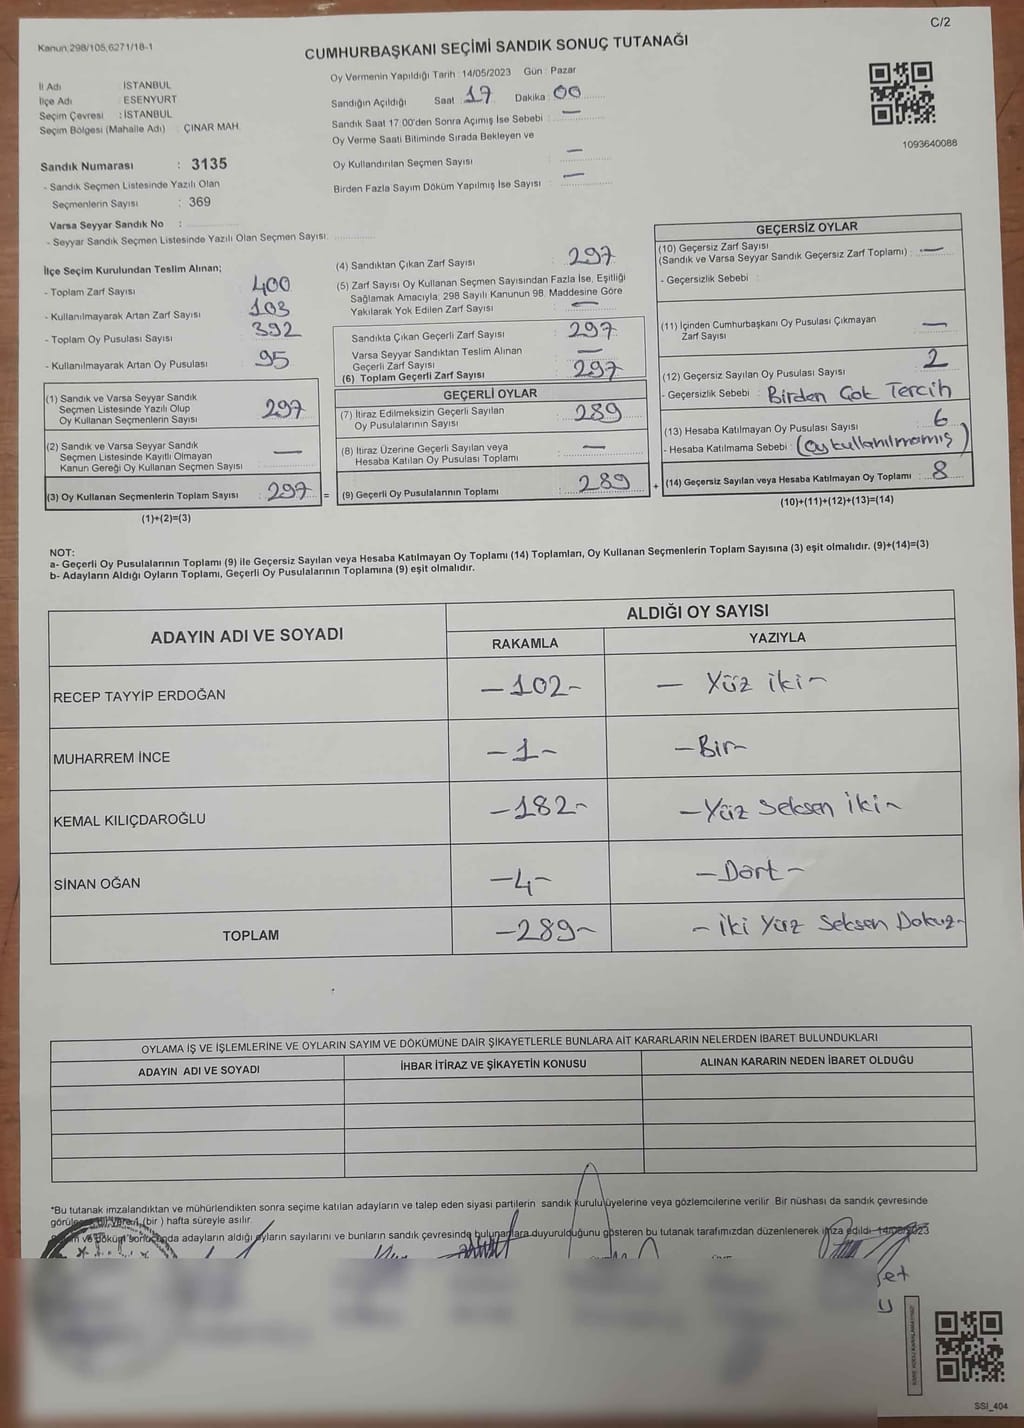 C/2
Kanun:298/105,6271/18-1
CUMHURBAŞKANI SEÇİMİ SANDIK SONUÇ TUTANAĞI
İl Adı : İSTANBUL
İlçe Adı : ESENYURT
Seçim Çevresi : İSTANBUL
Seçim Bölgesi (Mahalle Adı) : ÇINAR MAH.
Oy Vermenin Yapıldığı Tarih : 14/05/2023 Gün : Pazar
Sandığın Açıldığı Saat : 17 Dakika : 00
Sandık Saat 17.00'den Sonra Açımış İse Sebebi : —
Oy Verme Saati Bitiminde Sırada Bekleyen ve
Oy Kullandırılan Seçmen Sayısı : —
Birden Fazla Sayım Döküm Yapılmış İse Sayısı : —
1093640088
Sandık Numarası : 3135
- Sandık Seçmen Listesinde Yazılı Olan
Seçmenlerin Sayısı : 369
Varsa Seyyar Sandık No :
- Seyyar Sandık Seçmen Listesinde Yazılı Olan Seçmen Sayısı:
İlçe Seçim Kurulundan Teslim Alınan;
- Toplam Zarf Sayısı : 400
- Kullanılmayarak Artan Zarf Sayısı : 103
- Toplam Oy Pusulası Sayısı : 392
- Kullanılmayarak Artan Oy Pusulası : 95
(1) Sandık ve Varsa Seyyar Sandık
Seçmen Listesinde Yazılı Olup
Oy Kullanan Seçmenlerin Sayısı : 297
(2) Sandık ve Varsa Seyyar Sandık
Seçmen Listesinde Kayıtlı Olmayan
Kanun Gereği Oy Kullanan Seçmen Sayısı : —
(3) Oy Kullanan Seçmenlerin Toplam Sayısı : 297 =
(1)+(2)=(3)
(4) Sandıktan Çıkan Zarf Sayısı : 297
(5) Zarf Sayısı Oy Kullanan Seçmen Sayısından Fazla İse, Eşitliği
Sağlamak Amacıyla; 298 Sayılı Kanunun 98. Maddesine Göre
Yakılarak Yok Edilen Zarf Sayısı : —
Sandıkta Çıkan Geçerli Zarf Sayısı : 297
Varsa Seyyar Sandıktan Teslim Alınan
Geçerli Zarf Sayısı : —
(6) Toplam Geçerli Zarf Sayısı : 297
GEÇERLİ OYLAR
(7) İtiraz Edilmeksizin Geçerli Sayılan
Oy Pusulalarının Sayısı : 289
(8) İtiraz Üzerine Geçerli Sayılan veya
Hesaba Katılan Oy Pusulası Toplamı : —
(9) Geçerli Oy Pusulalarının Toplamı : 289 +
GEÇERSİZ OYLAR
(10) Geçersiz Zarf Sayısı
(Sandık ve Varsa Seyyar Sandık Geçersiz Zarf Toplamı) : —
- Geçersizlik Sebebi :
(11) İçinden Cumhurbaşkanı Oy Pusulası Çıkmayan
Zarf Sayısı : —
(12) Geçersiz Sayılan Oy Pusulası Sayısı : 2
- Geçersizlik Sebebi : Birden Çok Tercih
(13) Hesaba Katılmayan Oy Pusulası Sayısı : 6
- Hesaba Katılmama Sebebi : (Oy kullanılmamış)
(14) Geçersiz Sayılan veya Hesaba Katılmayan Oy Toplamı : 8
(10)+(11)+(12)+(13)=(14)
NOT:
a- Geçerli Oy Pusulalarının Toplamı (9) ile Geçersiz Sayılan veya Hesaba Katılmayan Oy Toplamı (14) Toplamları, Oy Kullanan Seçmenlerin Toplam Sayısına (3) eşit olmalıdır. (9)+(14)=(3)
b- Adayların Aldığı Oyların Toplamı, Geçerli Oy Pusulalarının Toplamına (9) eşit olmalıdır.
ADAYIN ADI VE SOYADI ALDIĞI OY SAYISI
RAKAMLA YAZIYLA
RECEP TAYYİP ERDOĞAN -102- - Yüz iki -
MUHARREM İNCE -1- -Bir-
KEMAL KILIÇDAROĞLU -182- -Yüz Seksen iki-
SİNAN OĞAN -4- -Dört-
TOPLAM -289- - iki Yüz Seksen Dokuz-
OYLAMA İŞ VE İŞLEMLERİNE VE OYLARIN SAYIM VE DÖKÜMÜNE DAİR ŞİKAYETLERLE BUNLARA AİT KARARLARIN NELERDEN İBARET BULUNDUKLARI
ADAYIN ADI VE SOYADI İHBAR İTİRAZ VE ŞİKAYETİN KONUSU ALINAN KARARIN NEDEN İBARET OLDUĞU
*Bu tutanak imzalandıktan ve mühürlendikten sonra seçime katılan adayların ve talep eden siyasi partilerin sandık kurulu üyelerine veya gözlemcilerine verilir. Bir nüshası da sandık çevresinde
görülecek bir yere 1 (bir ) hafta süreyle asılır.
ve döküm sonucunda adayların aldığı oyların sayılarını ve bunların sandık çevresinde bulunanlara duyurulduğunu gösteren bu tutanak tarafımızdan düzenlenerek imza edildi. 14/05/2023
SSİ_404